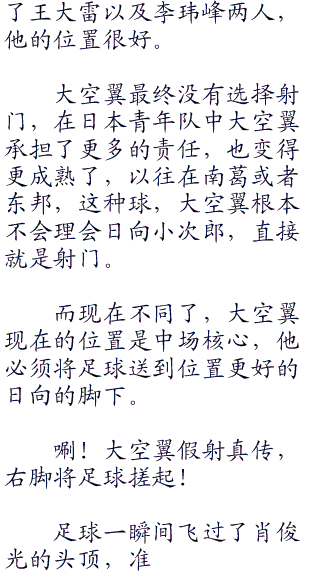 了王大雷以及李玮峰两人，
他的位置很好。
大空翼最终没有选择射
门，在日本青年队中大空翼
承担了更多的责任，也变得
更成熟了，以往在南葛或者
东邦，这种球，大空翼根本
不会理会日向小次郎，直接
就是射门。
而现在不同了，大空翼
现在的位置是中场核心，他
必须将足球送到位置更好的
日向的脚下。
唰！大空翼假射真传，
右脚将足球搓起！
足球一瞬间飞过了肖俊
光的头顶，准